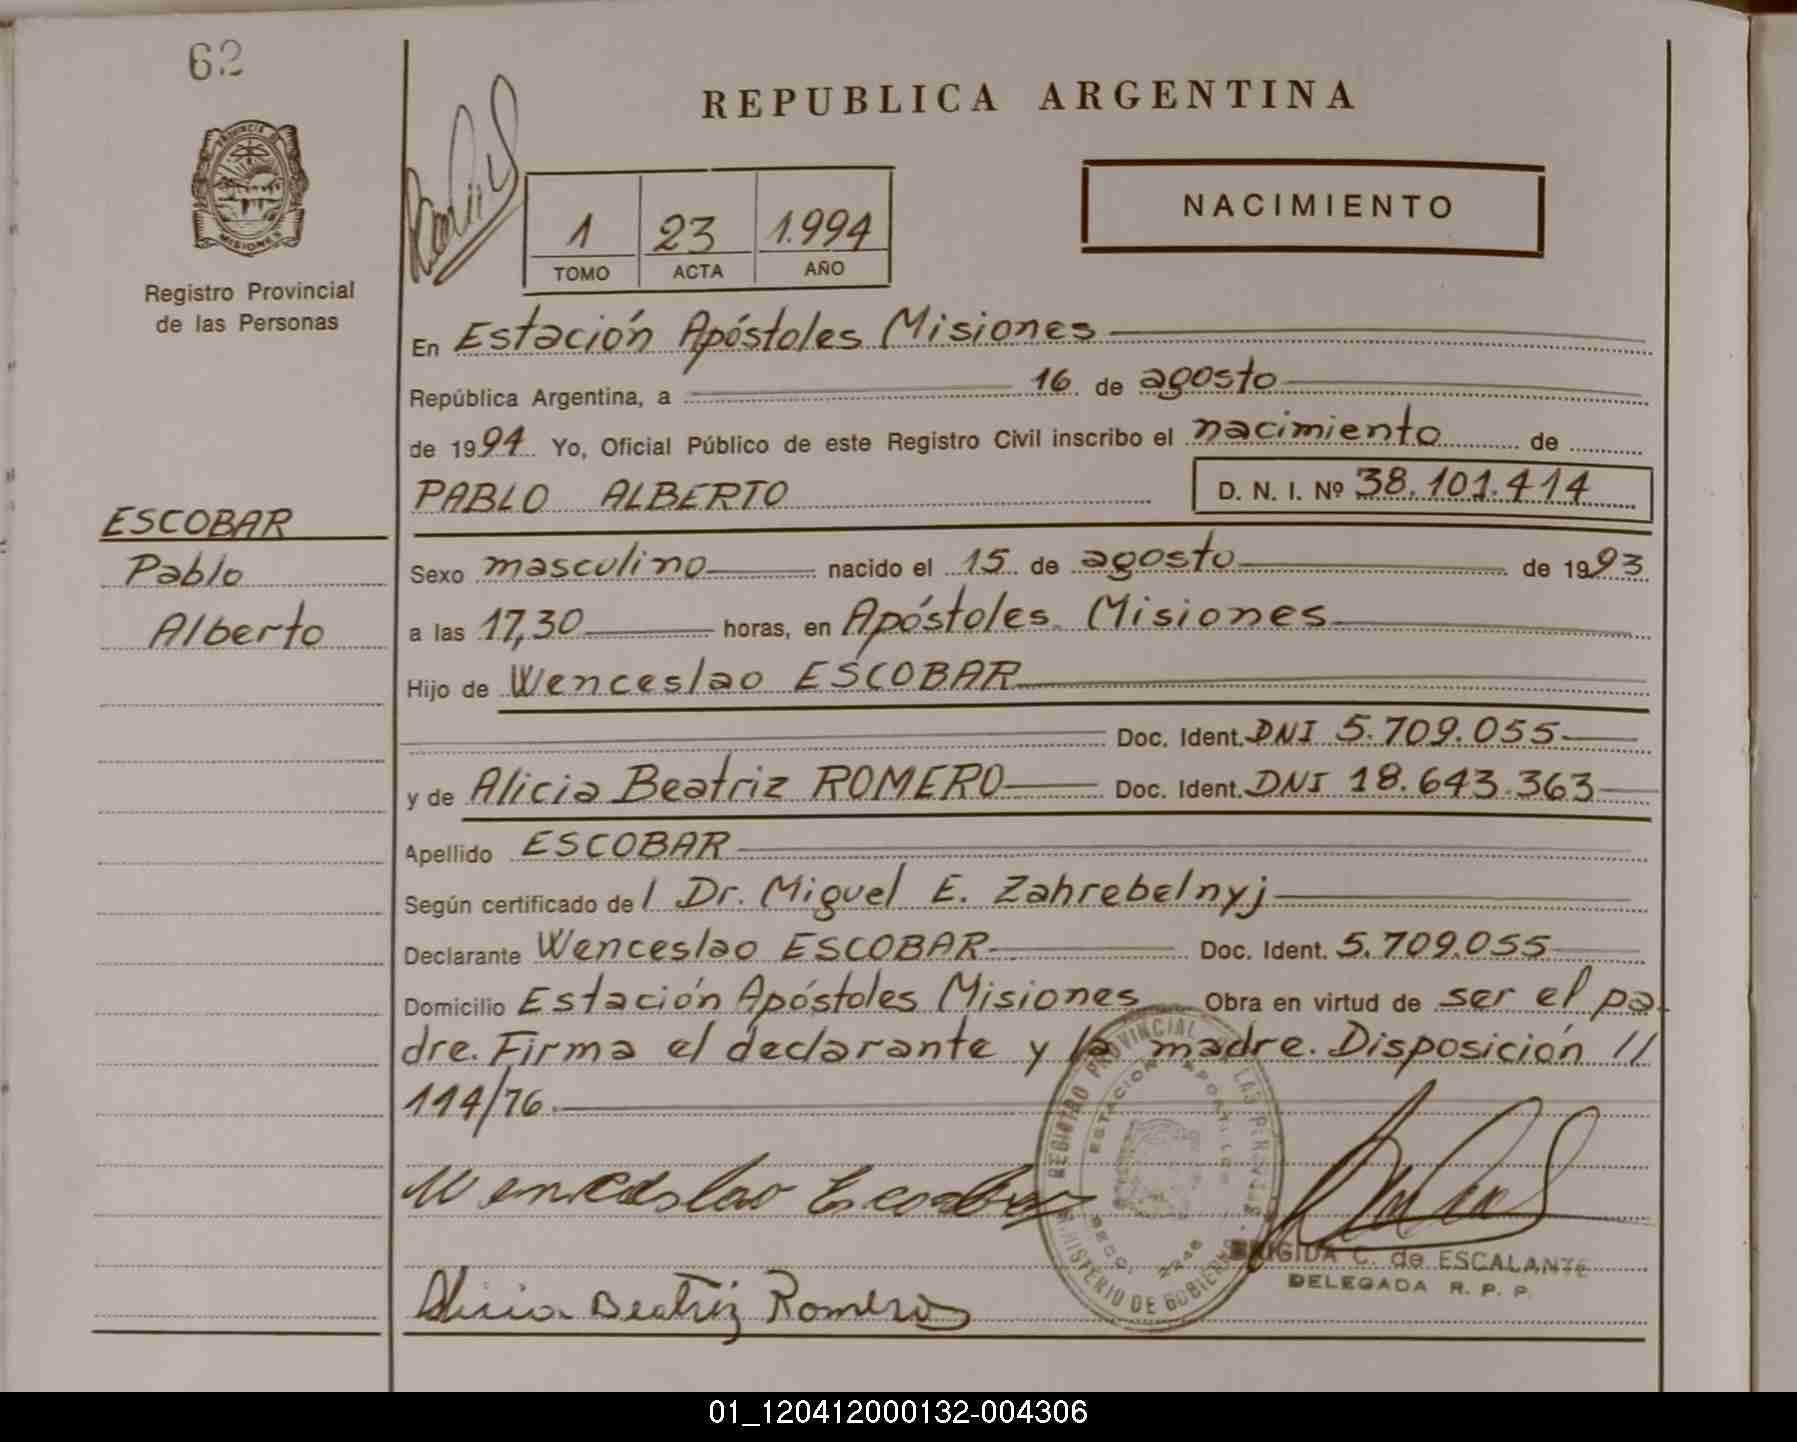 62
REPUBLICA ARGENTINA
PROVINCIA DE
MISIONES
Registro Provincial
de las Personas
1 23 1.994
TOMO ACTA AÑO
NACIMIENTO
En Estación Apóstoles Misiones
República Argentina, a 16 de agosto
de 1994 Yo, Oficial Público de este Registro Civil inscribo el nacimiento de
PABLO ALBERTO D. N. I. Nº 38.101.414
ESCOBAR
Pablo
Alberto
Sexo masculino nacido el 15 de agosto de 1993
a las 17,30 horas, en Apóstoles Misiones
Hijo de Wenceslao ESCOBAR
Doc. Ident. DNI 5.709.055
y de Alicia Beatriz ROMERO Doc. Ident. DNI 18.643.363
Apellido ESCOBAR
Según certificado del Dr. Miguel E. Zahrebelnyj
Declarante Wenceslao ESCOBAR Doc. Ident. 5.709.055
Domicilio Estación Apóstoles Misiones Obra en virtud de ser el pa-
dre. Firma el declarante y la madre. Disposición //
114/76.
Wenceslao Escobar
Alicia Beatriz Romero
REGISTRO PROVINCIAL DE LAS PERSONAS
MINISTERIO DE GOBIERNO
ESTACION APOSTOLES
SECC. 2246
BRIGIDA C. de ESCALANTE
DELEGADA R. P. P.
01_120412000132-004306